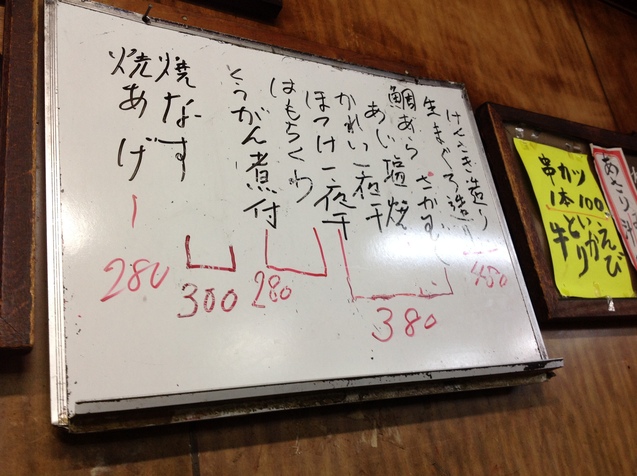 けんさき造り
生まぐろ造り
鯛あら
あじ塩焼
かれい一夜干
ほっけ一夜干
はもちくわ
くうがん煮付
焼なす
焼あげ
480
380
280
300
280
串カツ
1本100
えび
いか
とり
牛
あさり